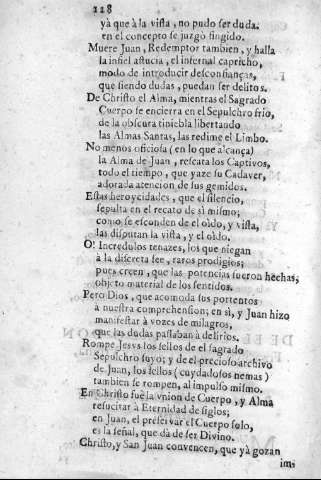 128
yà que à la vista, no pudo ser duda.
en el concepto se juzgò fingido.
Muere Juan, Redemptor tambien, y halla
la infiel astucia, el infernal capricho,
modo de introducir desconfianças,
que siendo dudas, puedan ser delitos.
De Christo el Alma, mientras el Sagrado
Cuerpo se encierra en el Sepulchro frio,
de la obscura tiniebla libertando
las Almas Santas, las redime el Limbo.
No menos oficiosa (en lo que alcança)
la Alma de Juan, rescata los Captivos,
todo el tiempo, que yaze su Cadaver,
adorada atencion de sus gemidos.
Estas heroycidades, que el silencio,
sepulta en el recato de sì mismo;
como se esconden de el oldo, y vista,
las disputan la vista, y el oldo.
O! Incredulos tenazes, los que niegan
à la discreta fee, raros prodigios;
pues creen, que las potencias fueron hechas,
objeto material de los sentidos.
Pero Dios, que acomoda sus portentos
à nuestra comprehension; en sì, y Juan hizo
manifestar à vozes de milagros,
que las dudas passaban à delirios.
Rompe Jesvs los sellos de el sagrado
Sepulchro suyo; y de el precioso archivo
de Juan, los sellos (cuydadosos nemas)
tambien se rompen, al impulso mismo.
En Christo fuè la vnion de Cuerpo, y Alma
resucitar à Eternidad de siglos;
en Juan, el preservar el Cuerpo solo,
es la señal, que dà de ser Divino.
Christo, y San Juan convencen, que yà gozan
im-